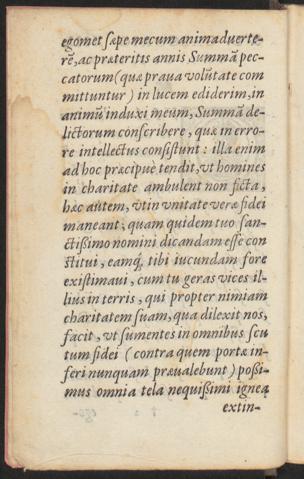 egomet sæpe mecum animaduerte-
rē, ac præteritis annis Summā pec-
catorum (quæ praua volūtate com
mittuntur) in lucem ediderim, in
animū induxi meum, Summā de-
lictorum conscribere, quæ in erro-
re intellectus consistunt: illa enim
ad hoc præcipuè tendit, vt homines
in charitate ambulent non ficta,
hæc autem, vt in vnitate veræ fidei
maneant, quam quidem tuo san-
ctissimo nomini dicandam esse con
stitui, eamq; tibi iucundam fore
existimaui, cum tu geras vices il-
lius in terris, qui propter nimiam
charitatem suam, qua dilexit nos,
facit, vt sumentes in omnibus scu
tum fidei (contra quem portæ in-
feri nunquam præualebunt) possi-
mus omnia tela nequissimi ignea
extin-